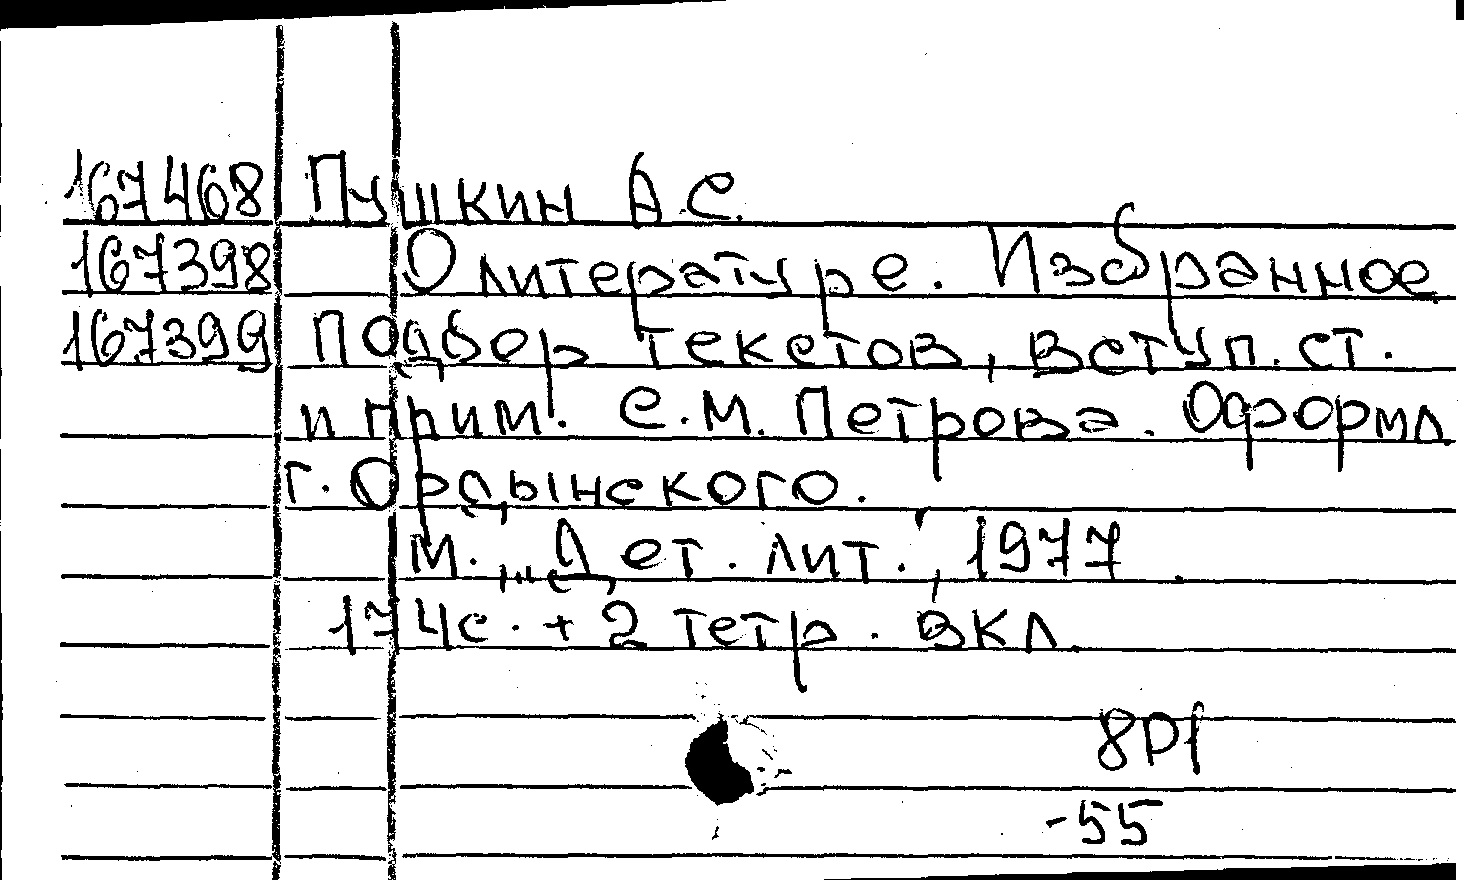 167468 Пушкин А.С.
167398 О литературе. Избранное
167399 Подбор текстов, вступ. ст.
и прим. С.М. Петрова. Оформл
г. Ордынского.
М., „Дет. лит.', 1977.
174с. + 2 тетр. вкл.
8Р1
-55